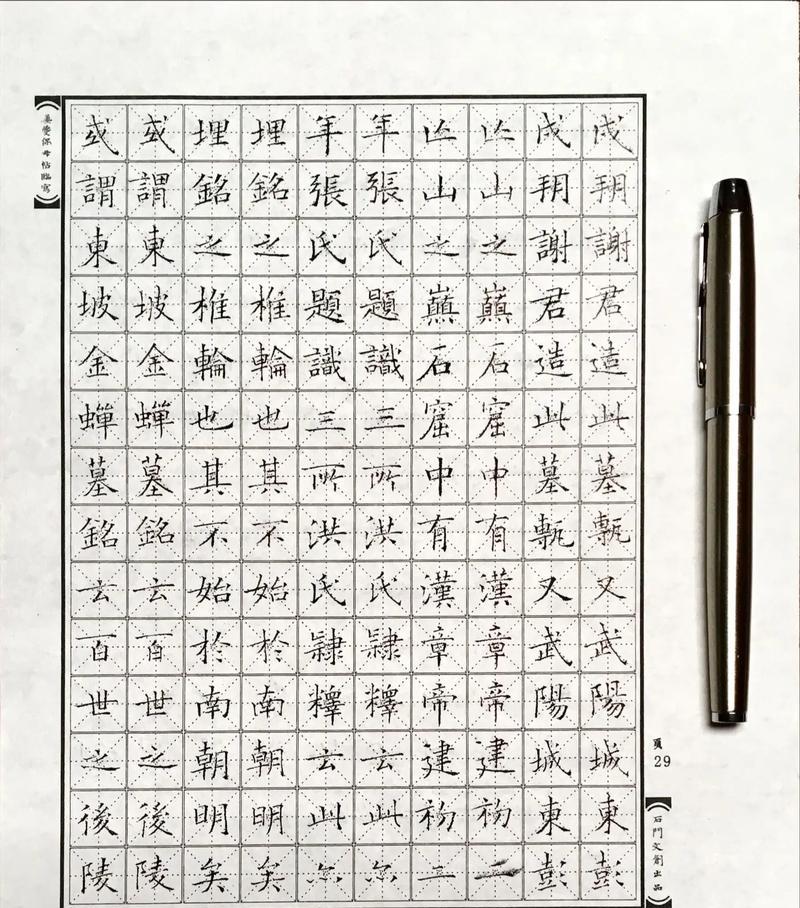 成翔謝君造此墓甎又武陽城東彭
成翔謝君造此墓甎又武陽城東彭
亾山之巔石窟中有漢章帝建初二
亾山之巔石窟中有漢章帝建初二
年張氏題識三所洪氏隸釋云此尒
年張氏題識三所洪氏隸釋云此尒
埋銘之椎輪也其不始於南朝明矣
埋銘之椎輪也其不始於南朝明矣
或謂東坡金蟬墓銘云百世之後陵
或謂東坡金蟬墓銘云百世之後陵
姜夔保母帖臨寫
頁29
石門文創出品